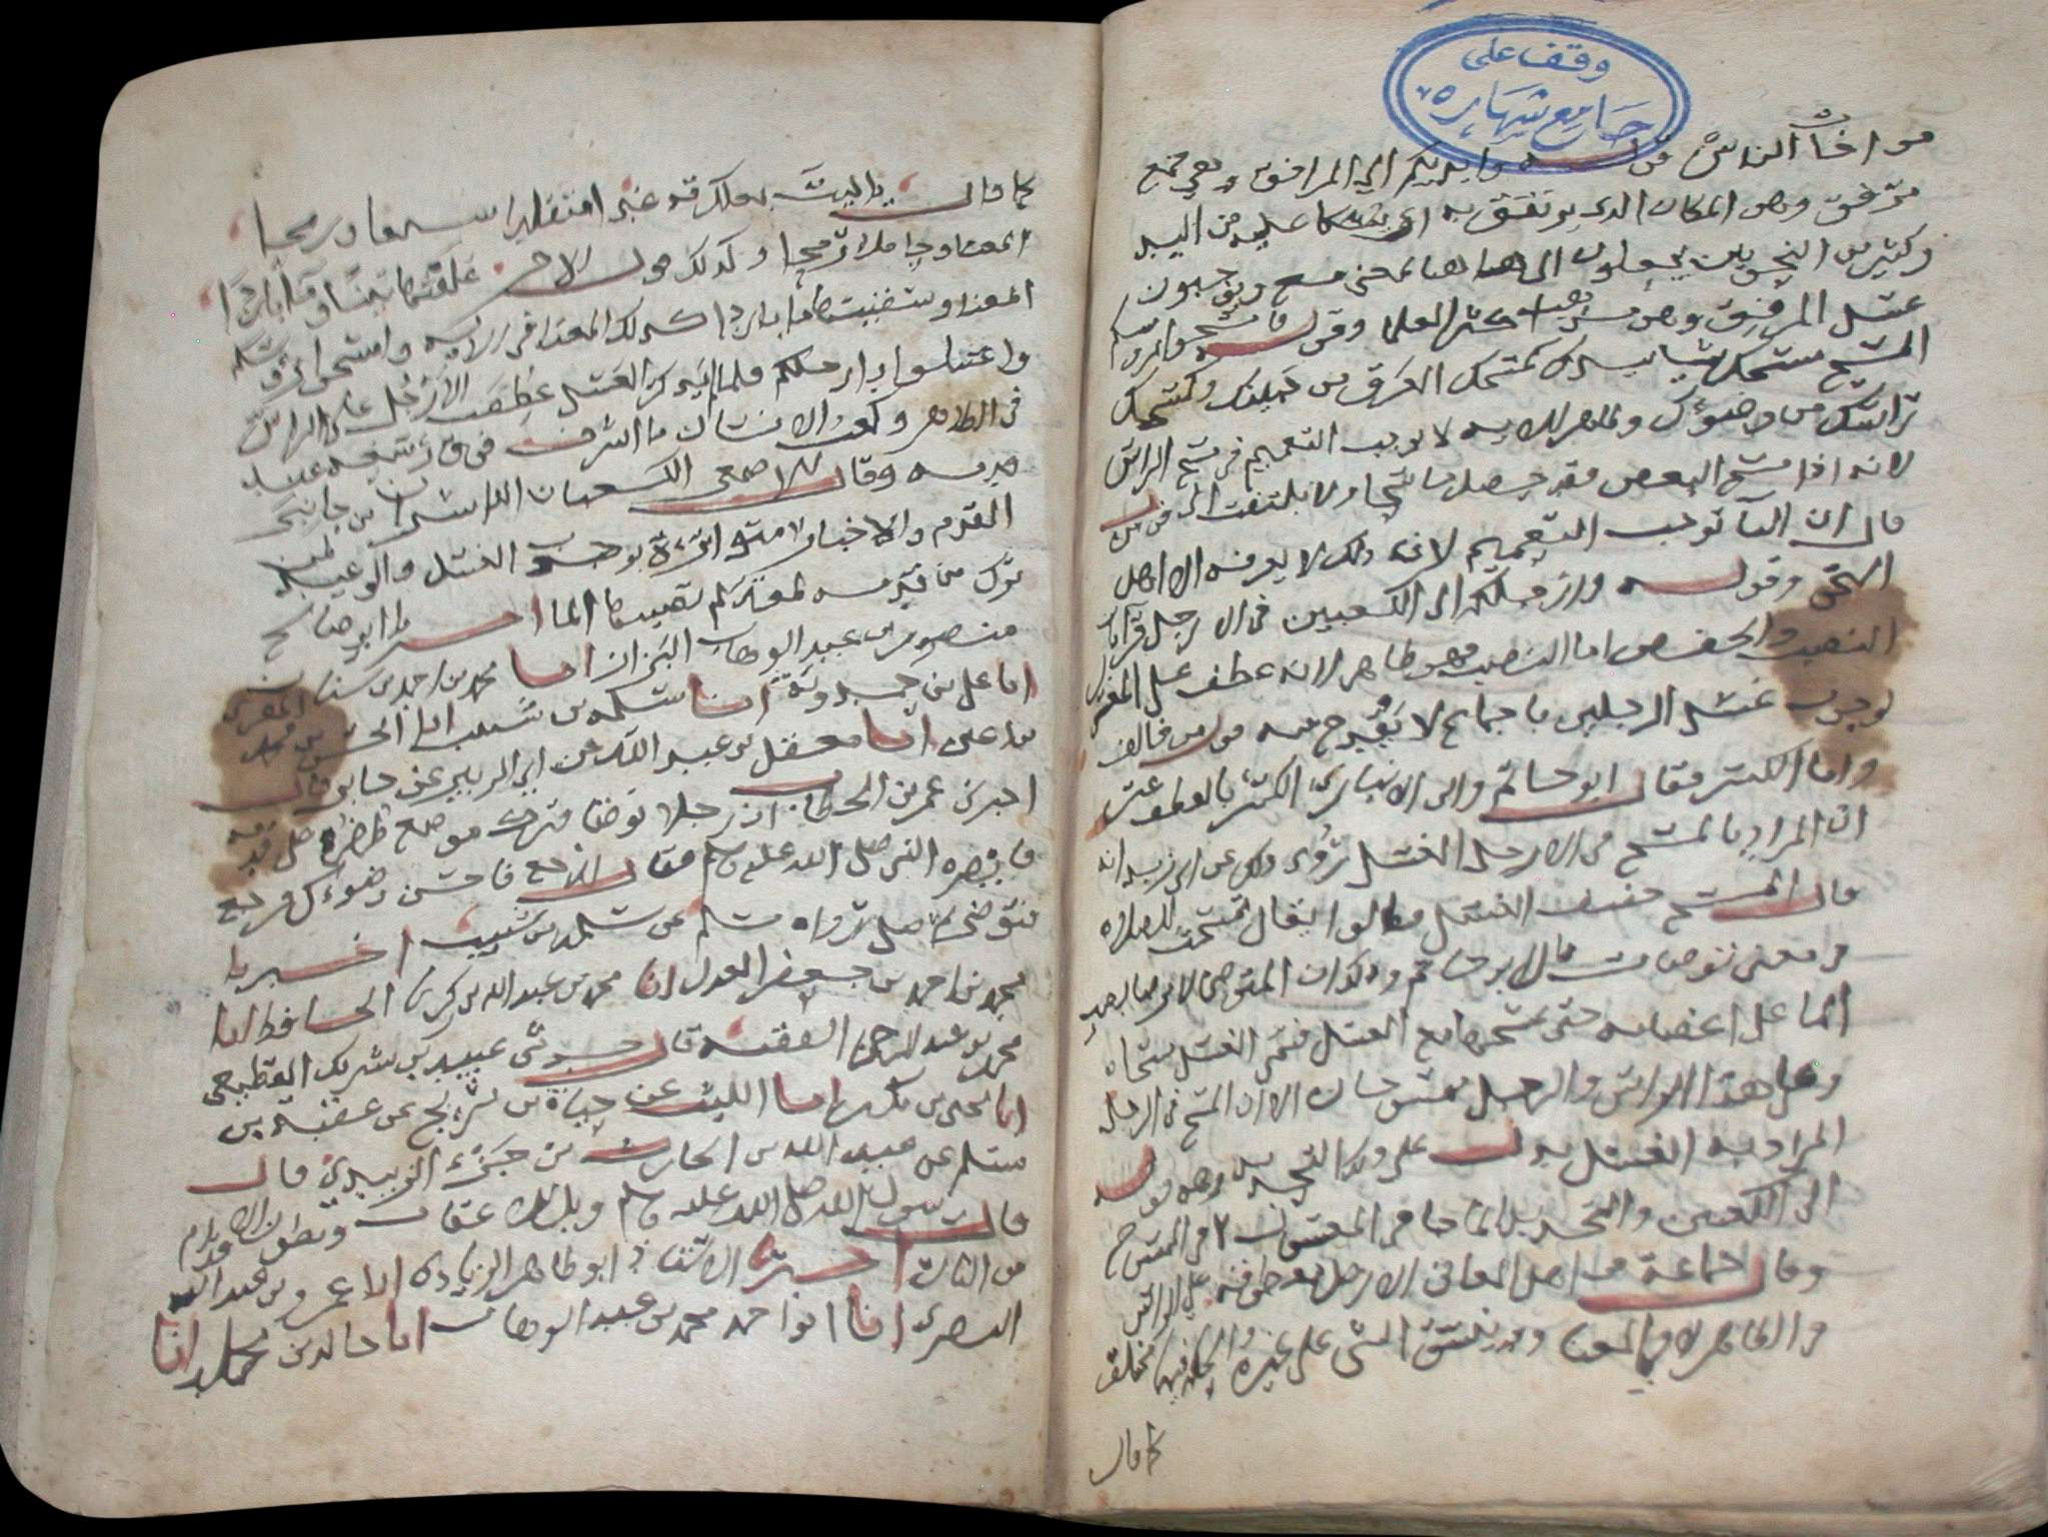 وقف على
جامع شهاره
مواخاة الناس قوله وايديكم الى المرافق وهي جمع
مرفق وهو المكان الذي يرتفق به اي يتكا عليه من اليد
وكثير من النحويين يجعلون الى هاهنا بمعنى مع ويوجبون
غسل المرفق وهو مذهب اكثر العلما وقوله وامسحوا برؤسكم
المسح مسحك شيا بيدك كمسحك العرق عن جبينك وكمسحك
راسك من وضوءك وظاهر الايه لا يوجب التعميم في مسح الراس
لانه اذا مسح البعض فقد حصل ماسحا ولا يلتفت الى قول من
قال ان البآ توجب التعميم لان ذلك لا يعرفه الا اهل
النحو وقوله وارجلكم الى الكعبين في الارجل قرأتان
النصب والخفض اما النصب فهو ظاهر لانه عطف على المغسول
لوجوب غسل الرجلين باجماع لا يقدح فيه قول من خالف
واما الكسر فقال ابو حاتم وابن الانباري الكسر بالعطف على
ان المراد بالمسح في الارجل الغسل روى ذلك عن ابي زيد انه
قال المسح خفيف الغسل وقالوا يقال تمسحت للصلاه
في معنى توضات قال ابو حاتم وذلك ان المتوضي لا يرضا بصب
الما على اعضايه حتى يمسحها مع الغسل فسمى الغسل مسحا
وعلى هذا الراس والرجل ممسوحان الا ان المسح في الرجل
المراد به الغسل يدل على ذلك التحديد وهو قوله
الى الكعبين والتحديد انما جا في المغسول لا في الممسوح
وقال جماعة من اهل المعاني الارجل معطوفة على الراس
في الظاهر لا في المعنا وقد ينسق الشي على غيره والحكم فيهما مختلف
كما قال
كما قال يا ليت بعلك قد غدا متقلدا سيفا ورمحا
المعنا وحاملا رمحا وكذلك قول الاخر علفتها تبنا وما باردا
المعنا وسقيتها ما باردا كذلك المعنا في الايه وامسحوا برؤسكم
واغسلوا ارجلكم فلما لم يذكر الغسل عطفت الارجل على الراس
في الظاهر وكعب الانسان ما اشرف فوق رسغه عند
قدمه وقال الاصمعي الكعبان الناشزان من جانبي
القدم والاخبار متواترة بوجوب الغسل والوعيد لمن
ترك من قدمه لمعة لم يصبها الما اخبرنا ابو صالح
منصور بن عبد الوهاب البزاز انا محمد بن احمد بن سنان المقري
انا على بن حمدويه انا سلمه بن شبيب انا الحسن بن محمد
بن اعين انا معقل بن عبيد الله عن ابي الزبير عن جابر قال
اخبرني عمر بن الخطاب ان رجلا توضا فترك موضع ظفر على قدمه
فابصره النبي صلى الله عليه وسلم فقال ارجع فاحسن وضوءك فرجع
فتوضى ثم صلى رواه مسلم عن سلمه بن شبيب اخبرنا
محمد بن احمد بن جعفر العدل انا محمد بن عبد الله بن زكريا الحافظ انا
محمد بن عبد الرحمن الفقيه قال حدثني عبيد بن شريك القطيعي
انا يحيى بن بكير انا الليث عن حيوة بن شريح عن عقبة بن
مسلم عن عبد الله بن الحارث بن جزء الزبيدي قال
قال رسول الله صلى الله عليه وسلم ويل للاعقاب وبطون الاقدام
من النار اخبرنا الاستاذ ابو طاهر الزيادي انا عمرو بن عبد الله
البصري انا ابو احمد محمد بن عبد الوهاب انا خالد بن مخلد انا